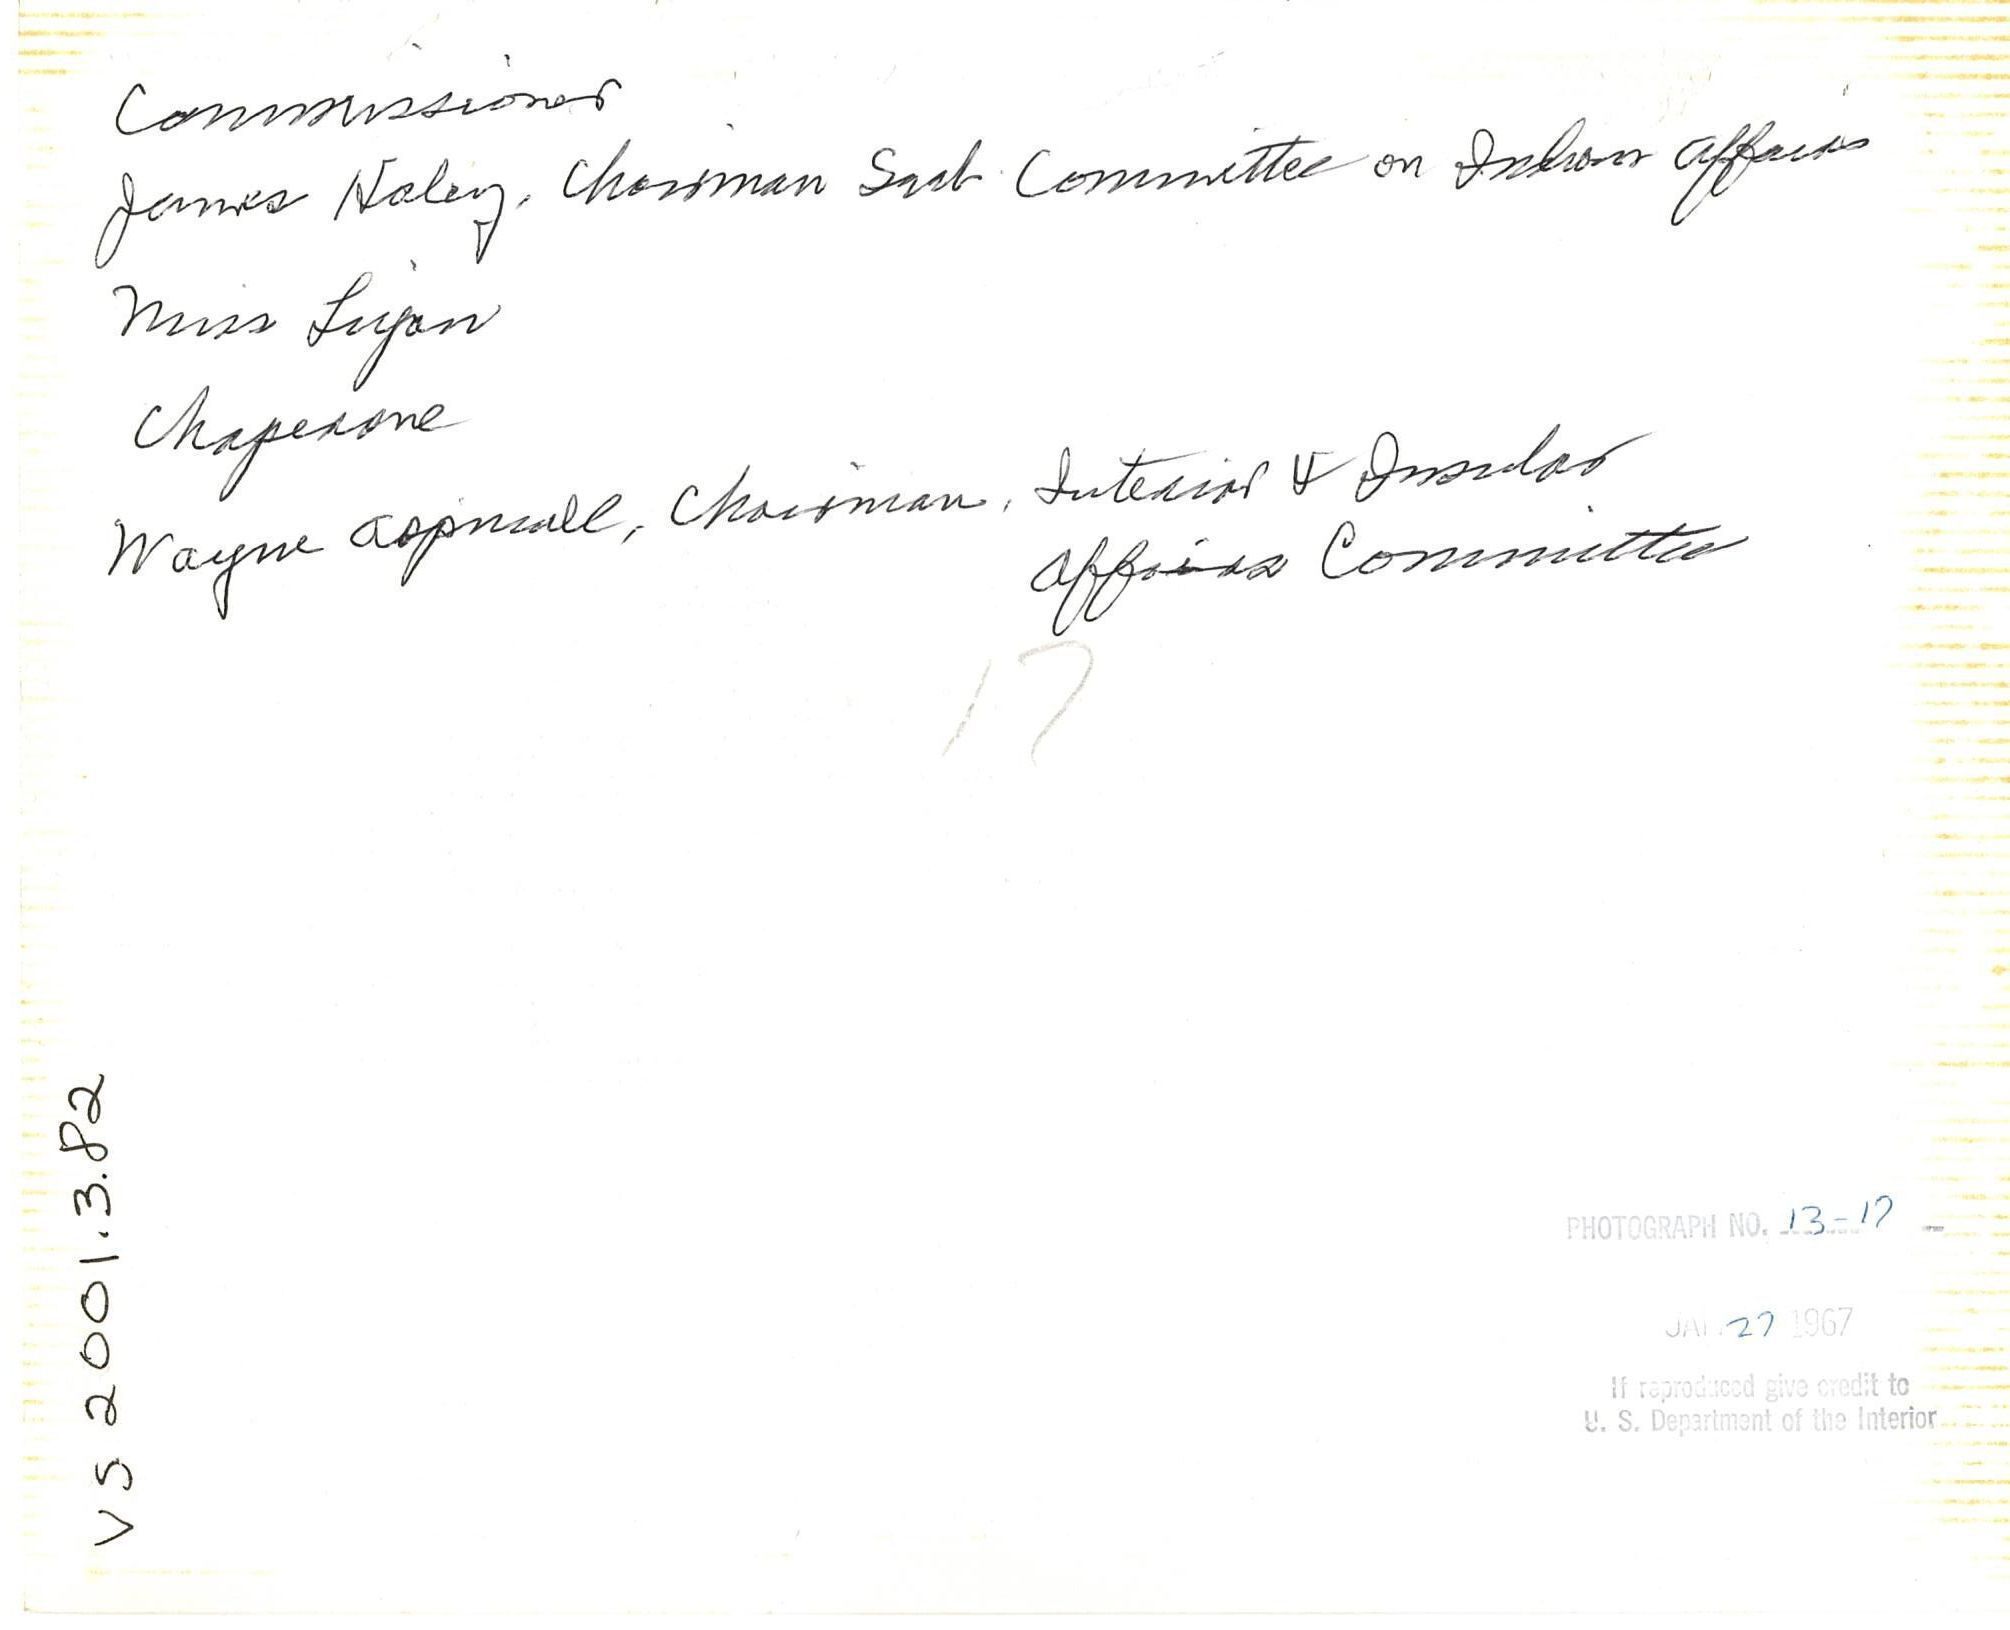 Commissioner
James Haley, Chairman Sub Committee on Indian Affairs
Miss
Chaperone
Wayne Aspinall, Chairman, Interior & Insular
Affairs Committee
17
VS 2001.3.82
PHOTOGRAPH NO. 13-17
JAN 27 1967
If reproduced give credit to
U. S. Department of the Interior